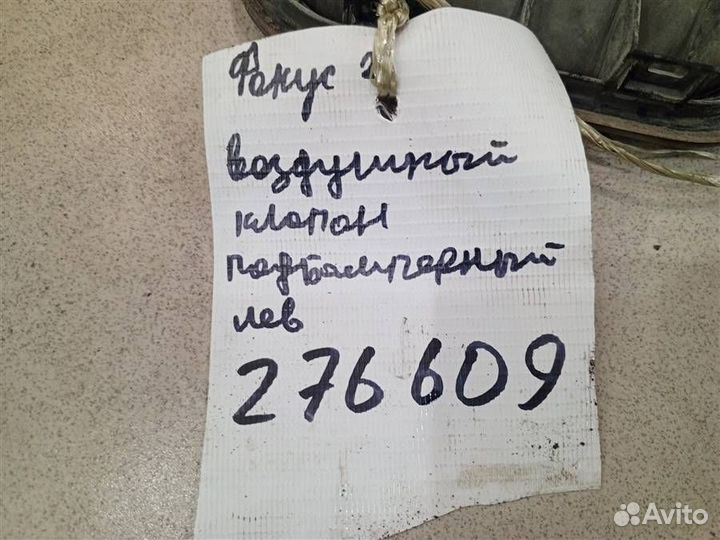 Фокус 2
воздушный
клапан
подбамперный
лев
276609
Avito